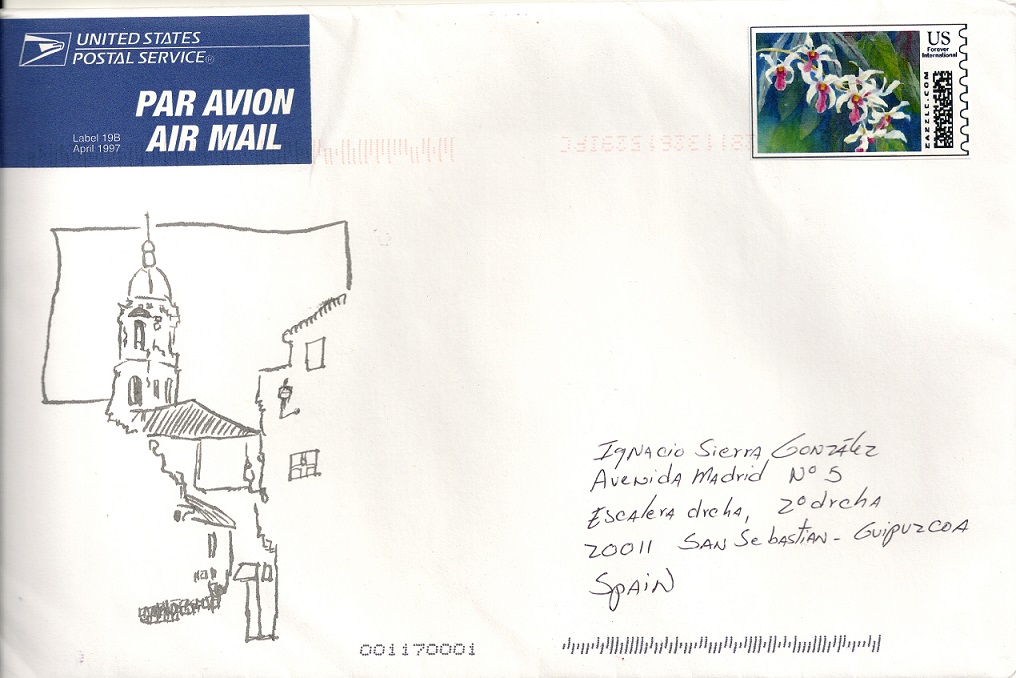 UNITED STATES
POSTAL SERVICE®
PAR AVION
AIR MAIL
Label 19B
April 1997
US
Forever
International
ZAZZLE.COM
Ignacio Sierra González
Avenida Madrid Nº 5
Escalera drcha, 2º drcha
20011 San Sebastian - Guipuzcoa
Spain
001170001